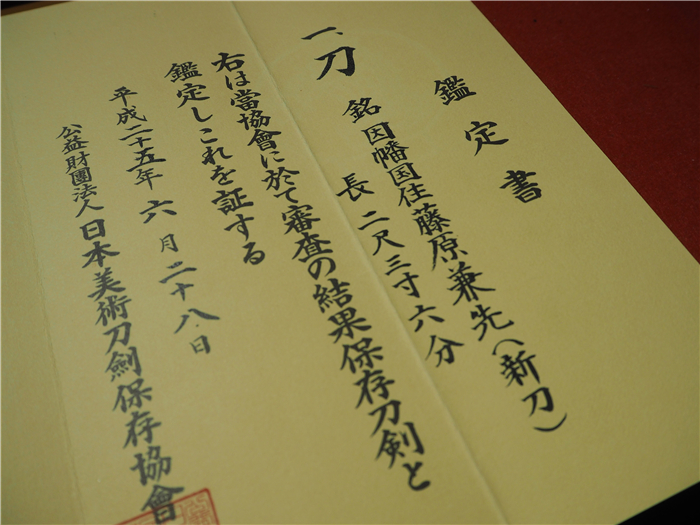 鑑定書
一、刀
銘因幡国住藤原兼先(新刀)
長二尺三寸六分
右は當協會に於て審査の結果保存刀剣と
鑑定しこれを証する
平成二十五年六月二十八日
公益財團法人日本美術刀劍保存協會